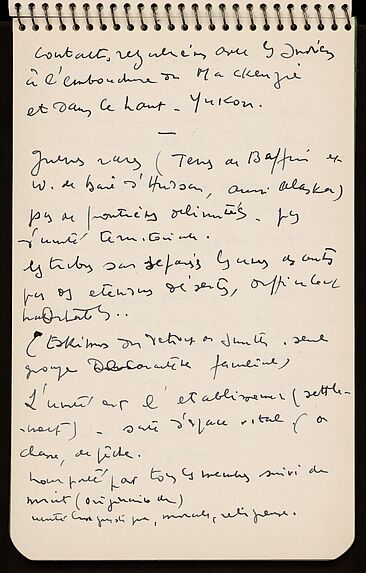 Contacts réguliers avec les Indiens
à l'embouchure du Mackenzie
et dans le haut-Yukon.
—
Guerres rares (Terre de Baffin et
W. de Baie d'Hudson, aussi Alaska)
pas de frontières délimitées - pas
d'unité territoriale.
les tribus sont séparées les unes des autres
par des étendues désertes, difficilement
habitables..
(Eskimos du détroit de Smith. seul
groupe familial)
L'unité est l'établissement (settle-
ment) - sorte d'espace vital (de
chasse, de pêche.
nom porté par tous les membres suivi de
miut (originaire de)
unité linguistique, morale, religieuse.